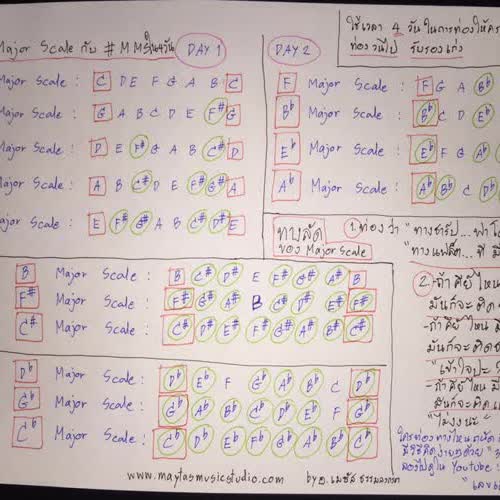 Major Scale กับ # MMS ใน 4 วัน DAY 1
Major Scale : C D E F G A B C
Major Scale : G A B C D E F# G
Major Scale : D E F# G A B C# D
Major Scale : A B C# D E F# G# A
Major Scale : E F# G# A B C# D# E
DAY 2
F Major Scale : F G A Bb
Bb Major Scale : Bb C D Eb
Eb Major Scale : Eb F G Ab
Ab Major Scale : Ab Bb C Db
ใช้เวลา 4 วัน ในการท่องให้คร
ท่องวนไป รับรองเก่ง
ทางลัด
ของ Major Scale
1. ท่องว่า "ทางชาร์ป...
"ทางแฟล็ต... ที มี
B Major Scale : B C# D# E F# G# A# B
F# Major Scale : F# G# A# B C# D# E# F#
C# Major Scale : C# D# E# F# G# A# B# C#
2. -ถ้าคีย์ไหน
มันก็จะติด
-ถ้าคีย์ไหน มี
มันก็จะติด
"เข้าใจปะ
-ถ้าคีย์ไหน มี
มันก็จะติด
"ไม่งงนะ"
Db Major Scale : Db Eb F Gb Ab Bb C Db
Gb Major Scale : Gb Ab Bb Cb Db Eb F Gb
Cb Major Scale : Cb Db Eb Fb Gb Ab Bb Cb
ใครท่องทางไหน
ลองไปดูใน Youtube
www.maytasmusicstudio.com by อ.เมธัส